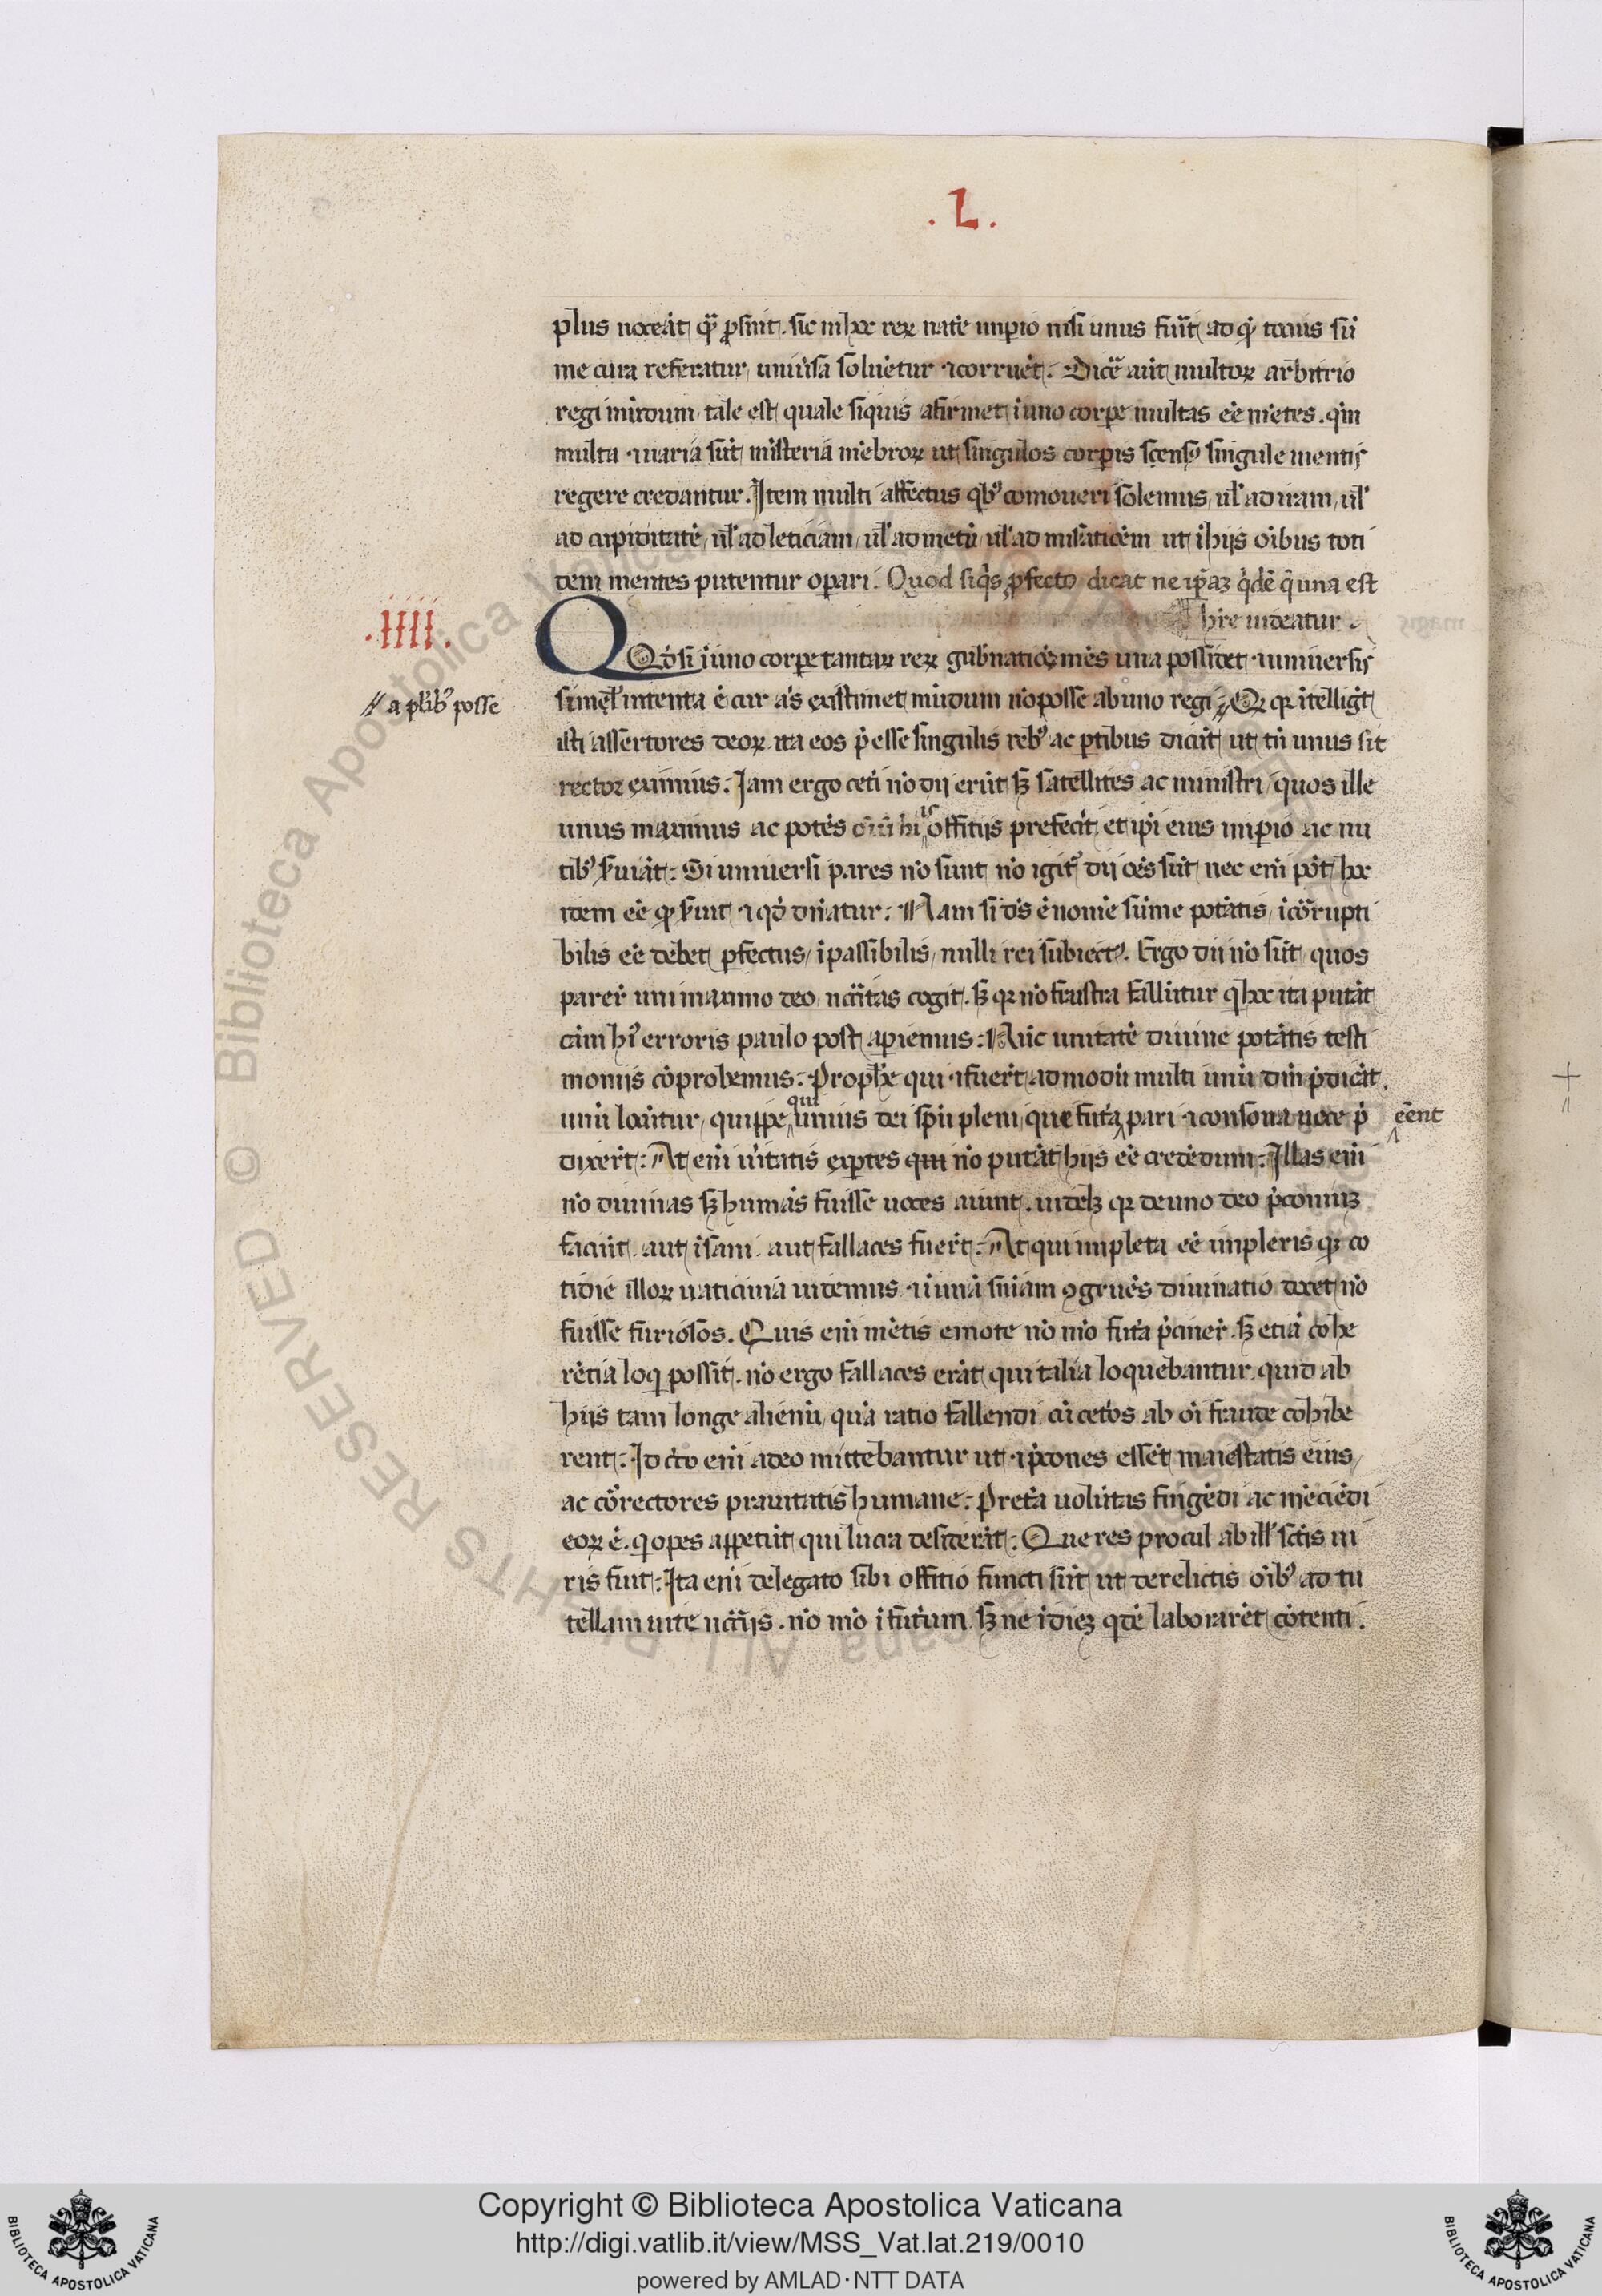 . L .
plus noceāt q̄ꝫ ꝓsint. sic in hoc reꝝ natē imperio nisi unus fuīt ad qꝫ tocius sū
me cura referatur, uniūsa soluētur ⁊ corruēt. Dicē aūt multoꝝ arbitrio
regi mūdum tale est quale siquis afirmet ī uno corpe multas eē mētes. qm̄
multa ⁊ uaria sūt misteria mēbroꝝ ut singulos corpis scensꝰ singule mentis
regere credantur. Item multi affectus qbꝰ comoueri solemus, ul̓ ad iram, ul̓
ad cupiditatē, ul̓ ad leticiam, ul̓ ad metū, ul̓ ad mis̄aticōem ut ī hijs oībus toti
dem mentes putentur opari. Quod siq̄s ꝓfecto dicat ne ip̄aꝫ q̄dē q̄ una est
hr̄e uideatur.
.IIII.
Qd̓si ī uno corpe tantaꝝ reꝝ gub̄natiōeꝫ mēs una possidet ⁊ uniuersis
// a plibꝰ posse
simul̓ intenta ē cur as exstimet mūdum nō posse ab uno regi // Qꝫ qꝛ ītelligūt
isti assertores deoꝝ. ita eos p̄ esse singulis rebꝰ ac ptibus dicūt ut tn̄ unus sit
rector eximius. Jam ergo cetī nō dij erūt sꝫ satellites ac ministri, quos ille
unus maximus ac potēs offitijs prefecit et ip̄i eius imperio ac nu
tibꝰ s̄uiāt. Si uniuersi pares nō sunt nō igitꝰ dij oēs sūt nec enī pōt hoc
idem eē qꝫ s̄uit ⁊ qd̓ dn̄atur. Nam si ds̄ ē nomē sūme potātis, icōrrupti
bilis eē debet perfectus, ipassibilis, nulli rei subiectꝰ. Ergo dij nō sūt, quos
parer̄ uni maximo deo, nc̄citas cogit. sꝫ qꝛ nō frustra falluntur q hoc ita putāt
cām hꝰ erroris paulo post aperiemus. Nūc unitatē diuine potātis testi
monijs cōprobemus. Prophe qui ⁊ fuerūt admodū multi unū dm̄ p̄dicāt.
qui
unū locūtur, quippe unius dei spū pleni que futa pari ⁊ consona uoce p̄
eēnt
dixerūt. At enī ūitatis expertes nō putāt hijs eē credēdum. Illas enī
nō diuinas sꝫ humās fuisse uoces aiunt. uidelꝫ qꝛ de uno deo p̄coniuꝫ
faciūt. aut isani. aut fallaces fuerūt. At qui impleta eē impleris qꝫ co
tidie illoꝝ uaticinia uidemus ⁊ ī unā sn̄iam ꝯgruēs diuinatio docet nō
fuisse furiosos. Quis enī mētis emote nō mō futa p̄ciner̄. sꝫ etiā cohe
rētia loq possit. nō ergo fallaces erāt qui talia loquebantur. quid ab
hijs tam longe alienū, quā ratio fallendi. cū cetos ab oī fraude cohibe
rent. Idcirco enī a deo mittebantur ut ⁊ p̄cones essēt maiestatis eius,
ac cōrectores prauitatis humane. Pretā uolūtas fingēdi ac mēciēdi
eoꝝ ē. q opes appetūt qui lucra desiderāt. Que res procul ab ill̓ sc̄tis ui
ris fuit. Ita enī delegato sibi offitio functi sūt ut derelictis oībꝰ ad tu
tellam uite nc̄c̄ijs. nō mō ī futūum sꝫ ne ī dieꝫ qdē laborarēt cōtenti.
Copyright © Biblioteca Apostolica Vaticana
http://digi.vatlib.it/view/MSS_Vat.lat.219/0010
powered by AMLAD·NTT DATA